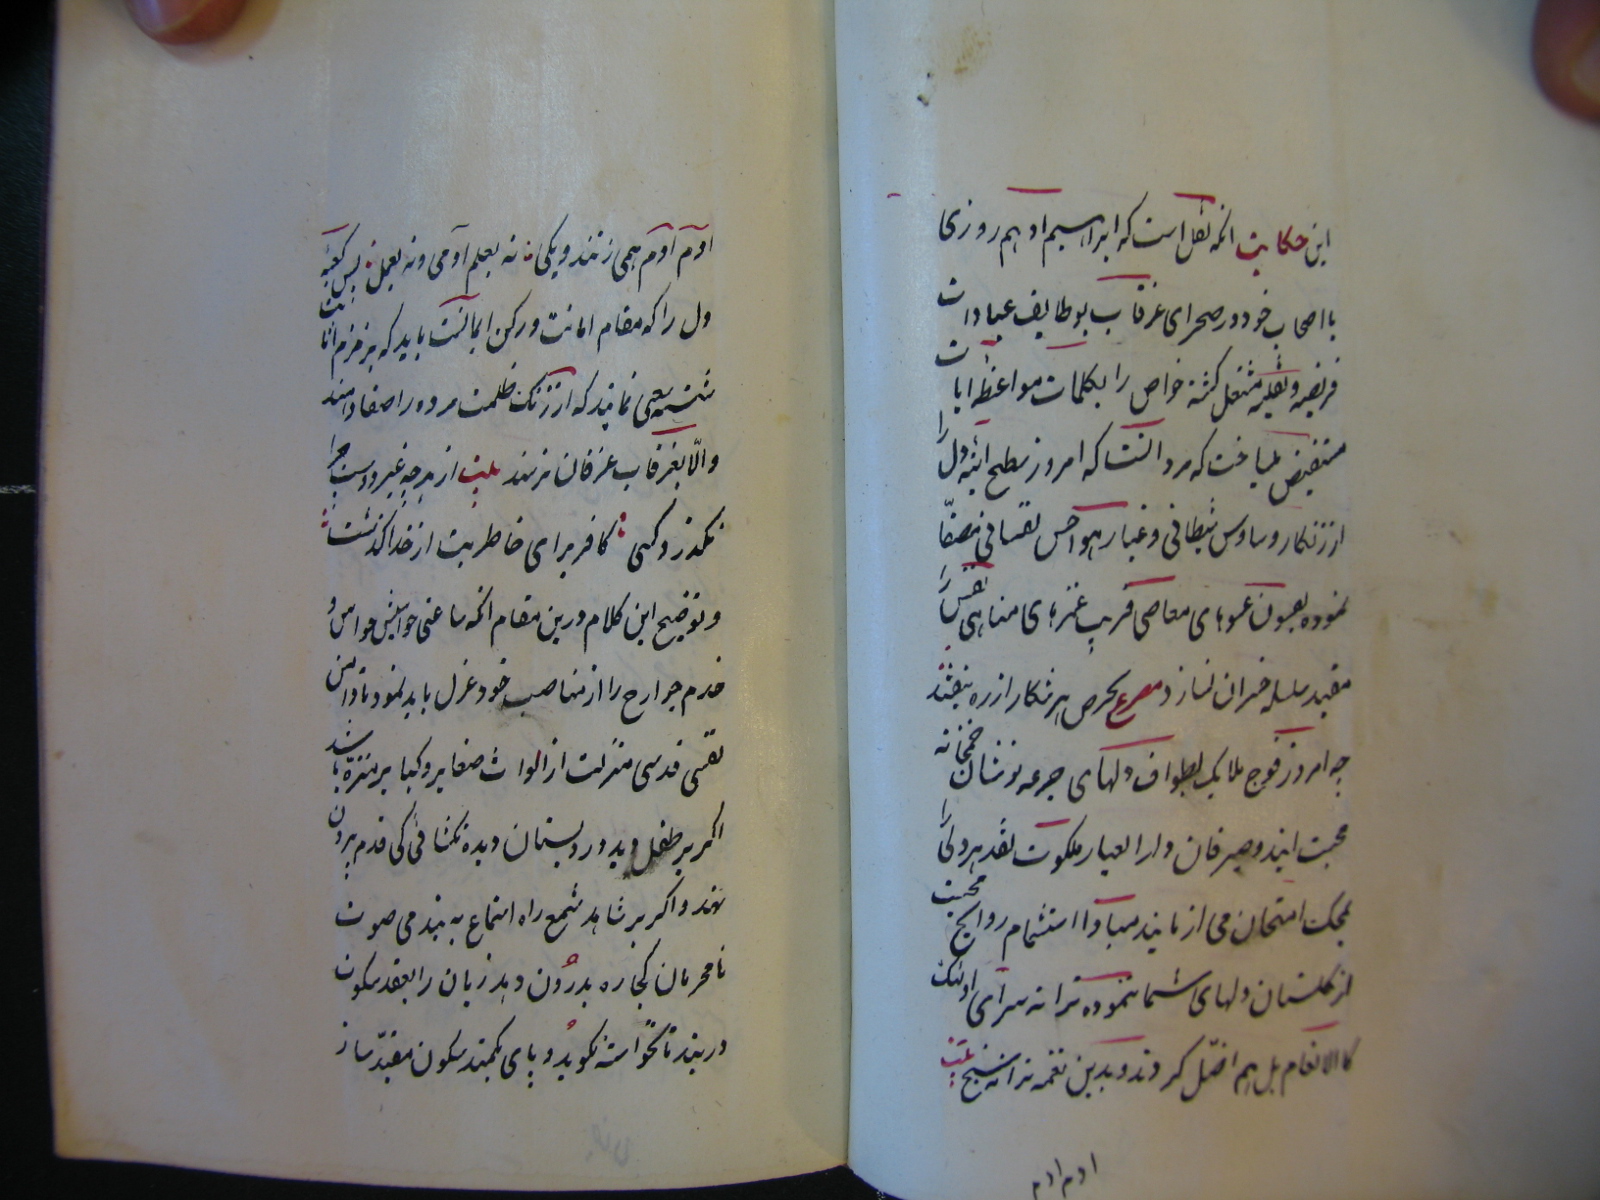 این حکایت انکه نقل است که ابراهیم ادهم روزی
با اصحاب خود در صحرای عرفات بوظایف عبادات
فریضه و نفلیه مشغل کشته خواص را بکلمات مواعظ ایات
مستفیض میساخت که مرد انست که امروز سطح ائینه دل را
از زنکار وساوس شیطانی و غبار هواجس نفسانی مصفّا
نموده بعیون معاصی قریب مناهی نفس را
مقید سلسله خسران نسازد مصرع بحرص هر شکار از ره نیفتد
چه امروز فوج ملایک بطواف دلهای جرعه نوشان خمخانه
محبت ایند و صیرفان دارالعیار ملکوت نقد هر دلی را
بمحک امتحان می ازمایند مبادا استشمام روایح محبت
از کلستان دلهای شما ننموده ترانه سرای اولئک
کالانعام بل هم اضل کردند و بدین نغمه ترانه سنج بیت
ادم ادم
ادم ادم همی زنند و یکی نه بعلم آدمی و نه بعمل پس کعبه
دل را که مقام امانت و رکن ایمانست باید که بزمزم انابت
شست سعی نمایند که از زنک ظلمت مروه را صفا دهند
والّا بعرفات عرفان نرسند بیت از هرچه غیر دوست چرا
نکذرد کسی کافر برای خاطر بت از خدا کذشت
و توضیح این کلام درین مقام انکه ساعتی حواس و
خدم جوارح را از مناصب خود عزل باید نمود تا دامن
نفس قدسی منزلت از الواث صغایر و کبایر منزه باشد
اکر بر طفل دید در دبستان دیده نکشائی کی قدم بیرون
نهد و اکر بر شاهد سمع راه استماع به بندی صوت
نامحرمان کجا ره بدرون دهد زبان را بعقد سکون
دربند تا نخواسته نکوید و پای بکمند سکون مقید ساز